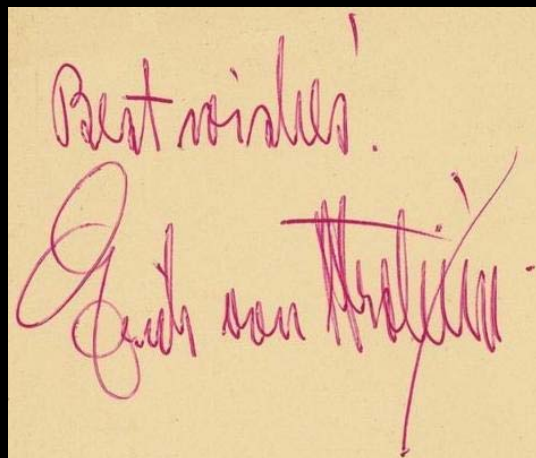 Best wishes!
Erich von Stroheim